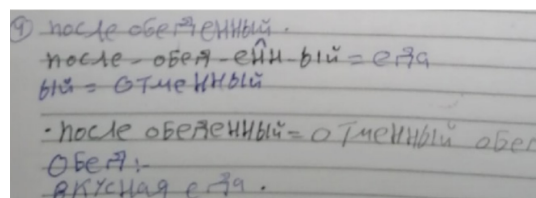 9) после обеденный.
после-обед-енн-ый = еда
ый = отменный
. после обеденный = отменный обед
обед:-
вкусная еда.